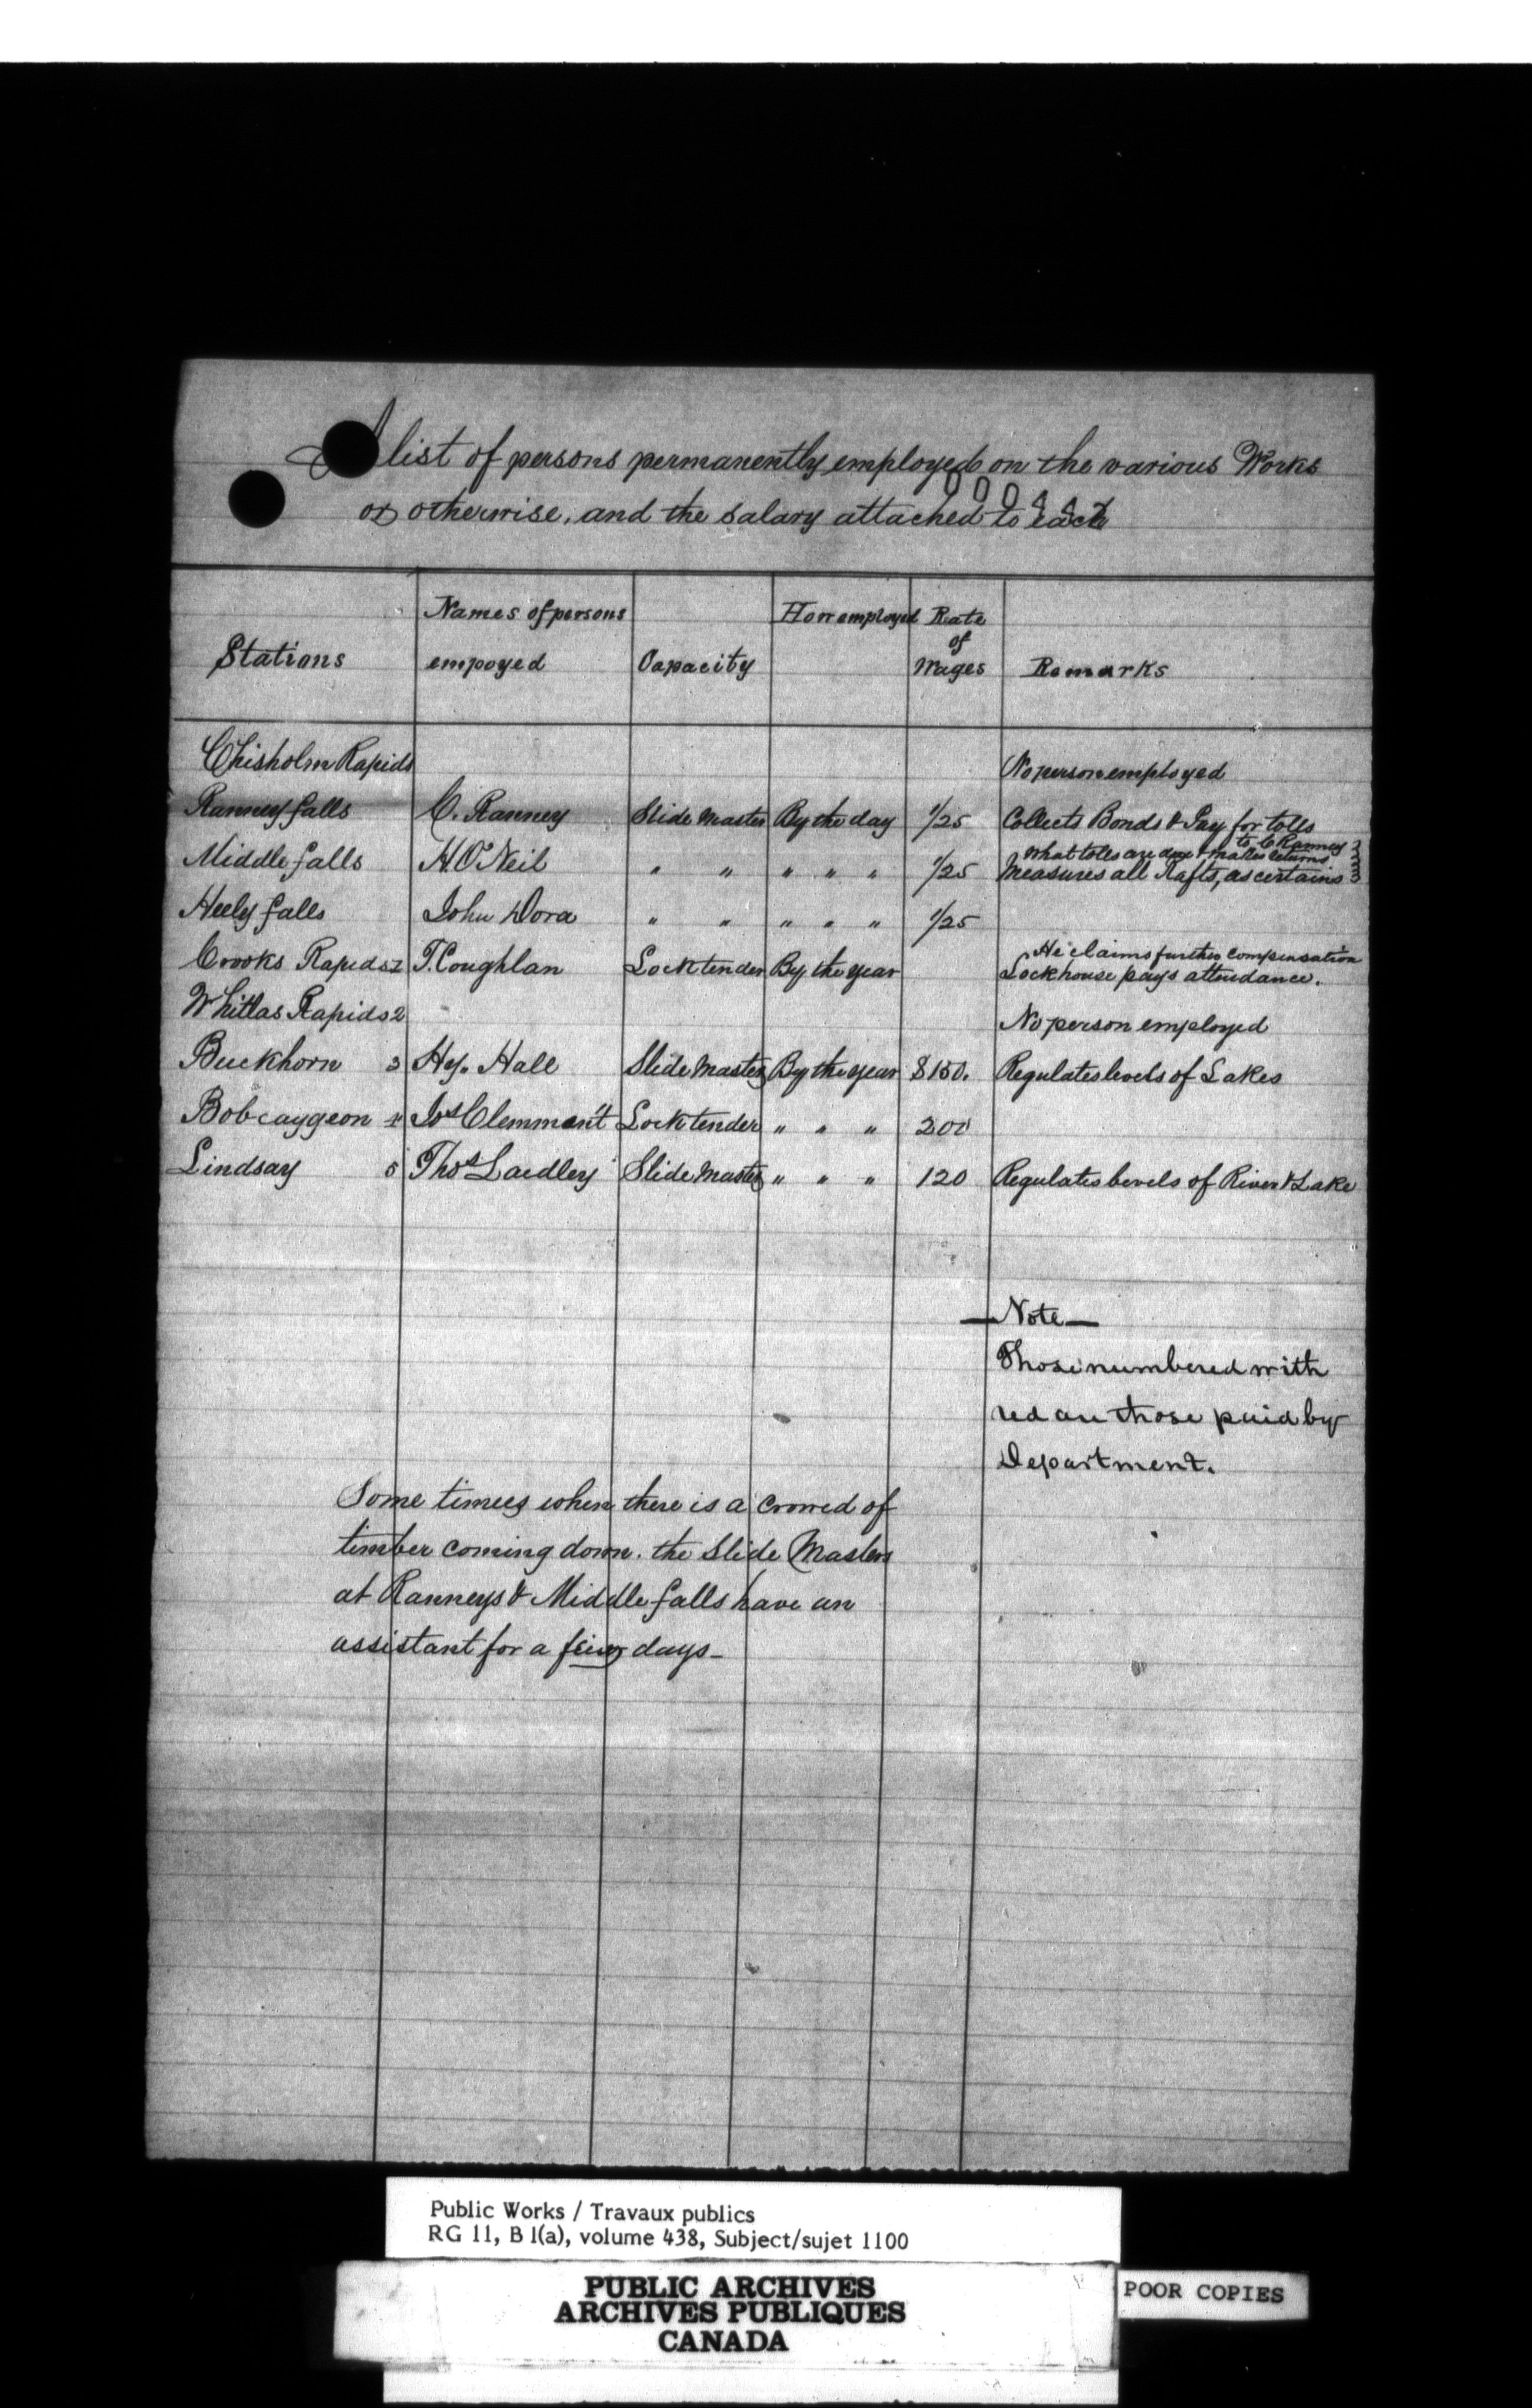 A list of persons permanently employed on the various Works
or otherwise, and the salary attached to each
Stations
Names of persons empoyed
Capacity
How employed
Rate of Wages
Remarks
Chisholm Rapids No person employed
Ranney falls C. Ranney Slide Master By the day 1/25 Collects Bonds & Pay for tolls
Middle falls H. O'Neil " " " " " 1/25 Measures all Rafts, ascertains
what tolls are due & makes returns
to C Ranney
Heely falls John Dora " " " " " 1/25
Crooks Rapids 1 T. Coughlan Lock tender By the year Lock house pays attendance.
He claims further compensation
Whitlas Rapids 2 No person employed
Buckhorn 3 Hy. Hall Slide Master By the year $150. Regulates levels of Lakes
Bobcaygeon 4 Jos Clemment Lock tender " " " 200
Lindsay 5 Thos Laidley Slide Master " " " 120 Regulates levels of River & Lake
— Note —
Those numbered with
red are those paid by
Department.
Some times when there is a crowd of
timber coming down. the Slide Masters
at Ranneys & Middle falls have an
assistant for a few days –
Public Works / Travaux publics
RG 11, B 1(a), volume 438, Subject/sujet 1100
PUBLIC ARCHIVES
ARCHIVES PUBLIQUES
CANADA
POOR COPIES